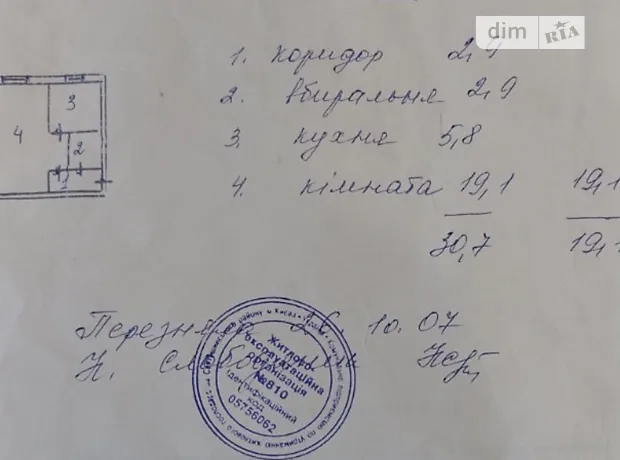 dim RIA
1. коридор 2,9
2. вбиральня 2,9
3. кухня 5,8
4. кімната 19,1 19,1
30,7 19,1
3
4
2
1
10. 07
Н.
Житлово-
експлуатаційна
організація
№810
Ідентифікаційний
код
05756062